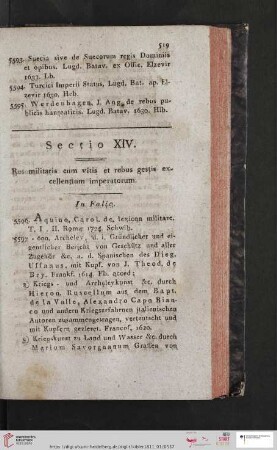 519
5593. Suecia sive de Suecorum regis Dominiis
et opibus. Lugd. Batav. ex Offic. Elzevir
1633. Lb.
5594. Turcici Imperii Status, Lugd. Bat. ap. El-
zevir 1630. Hrb.
5595. Werdenhagen, J. Ang. de rebus pu-
blicis hanseaticis. Lugd. Batav. 1630. Hlb.
Sectio XIV.
Rus militaris cum vitis et rebus gestis ex-
cellentium imperatorum.
In Folio.
5596. Aquino, Carol. de, lexicon militare.
T. I. II. Romae Schwlb.
Archeley, d. i. Gründlicher und ei-
gentlicher Bericht von Geschütz und aller
Zugehör &c. a. d. Spanischen des Dieg.
Uffanus, mit Kupf. von J. Theod. de
Bry. Frankf. 1614. Fb. quoed;
2) Kriegs- und Archeleykunst &c. durch
Hieron. Ruscellum aus dem Bapt.
de la Valle, Alexandro Capo Bian-
co und andern Kriegserfahrnen italienischen
Autoren zusammengezogen, verteutscht und
mit Kupfern gezieret. Francof. 1620.
3) Kriegskunst zu Land und Wasser &c. durch
Marium Savorgnanum Grafen von
UNIVERSITÄTS-
BIBLIOTHEK
HEIDELBERG